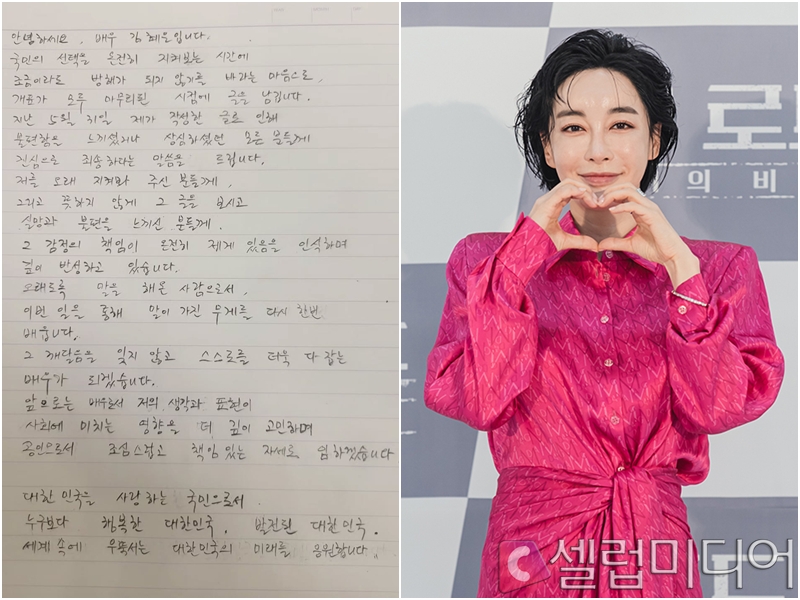 안녕하세요, 배우 김혜은입니다.
국민의 선택을 온전히 지켜보는 시간에
조금이라도 방해가 되지 않기를 바라는 마음으로,
개표가 모두 마무리된 시점에 글을 남깁니다.
지난 5월 31일 제가 작성한 글로 인해
불편함을 느끼셨거나 상심하셨던 모든 분들께
진심으로 죄송하다는 말씀을 드립니다.
저를 오래 지켜봐 주신 분들께,
그리고 뜻하지 않게 그 글을 보시고
실망과 불편을 느끼신 분들께.
그 감정의 책임이 온전히 제게 있음을 인식하며
깊이 반성하고 있습니다.
오래도록 말을 해온 사람으로서,
이번 일을 통해 말이 가진 무게를 다시 한번
배웁니다.
그 깨달음을 잊지 않고 스스로를 더욱 다 잡는
배우가 되겠습니다.
앞으로는 배우로서 저의 생각과 표현이
사회에 미치는 영향을 더 깊이 고민하며
공인으로서 조심스럽고 책임 있는 자세로 임하겠습니다
대한민국을 사랑하는 국민으로서.
누구보다 행복한 대한민국, 발전된 대한민국.
세계 속에 우뚝서는 대한민국의 미래를 응원합니다.
로
의 비
셀럽미디어